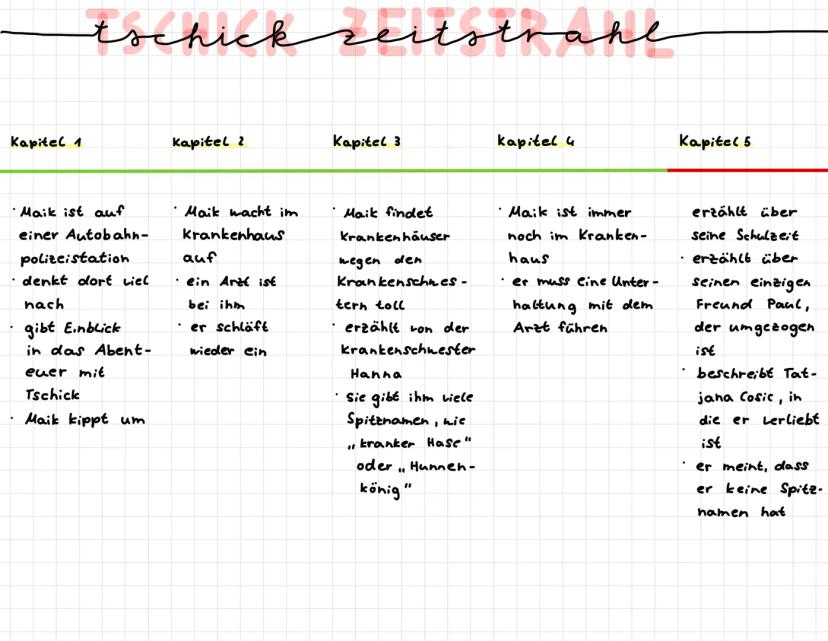 TSCHICK ZEITSTRAHL
tschick zeitstrahl
Kapitel 1
· Maik ist auf
einer Autobahn-
polizeistation
· denkt dort viel
nach
· gibt Einblick
in das Abent-
euer mit
Tschick
· Maik kippt um
Kapitel 2
· Maik wacht im
Krankenhaus
auf
· ein Arzt ist
bei ihm
· er schläft
wieder ein
Kapitel 3
· Maik findet
Krankenhäuser
wegen den
Krankenschwes-
tern toll
· erzählt von der
Krankenschwester
Hanna
· sie gibt ihm viele
Spitznamen, wie
„kranker Hase"
oder „Hunnen-
könig"
Kapitel 4
· Maik ist immer
noch im Kranken-
haus
· er muss eine Unter-
haltung mit dem
Arzt führen
Kapitel 5
erzählt über
seine Schulzeit
· erzählt über
seinen einzigen
Freund Paul,
der umgezogen
ist
· beschreibt Tat-
jana Cosic, in
die er verliebt
ist
· er meint, dass
er keine Spitz-
namen hat